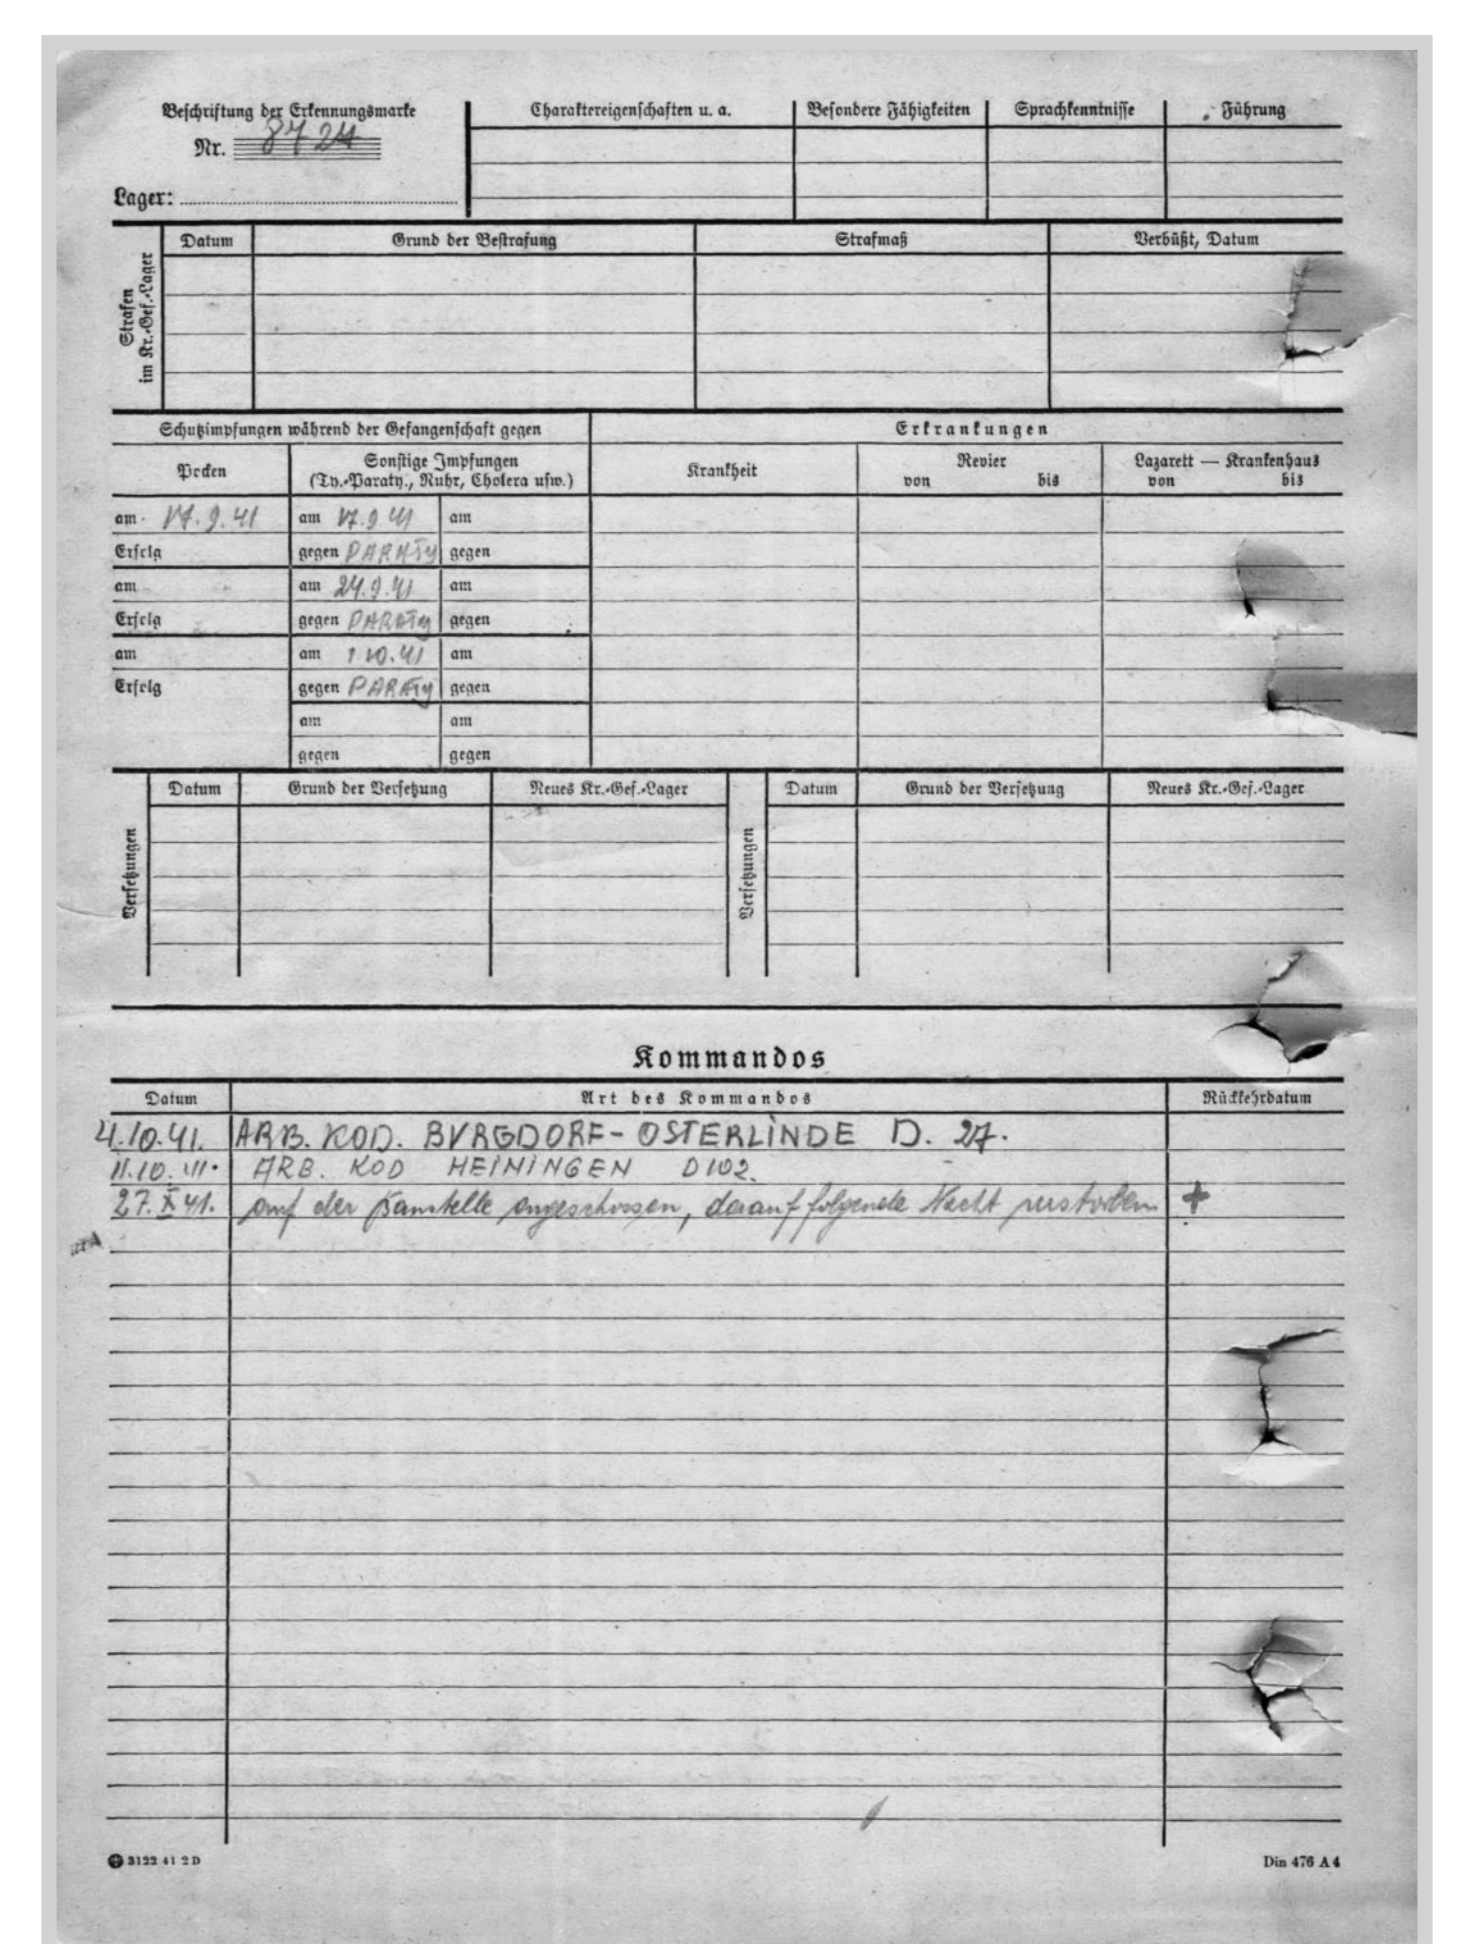 Beschriftung der Erkennungsmarke
Nr. 8724
Lager:
Charaktereigenschaften u. a. Besondere Fähigkeiten Sprachkenntnisse Führung
Strafen
im Kr.-Gef.-Lager
Datum Grund der Bestrafung Strafmaß Verbüßt, Datum
Schutzimpfungen während der Gefangenschaft gegen Erkrankungen
Pocken
Sonstige Impfungen
(Ty.-Paraty., Ruhr, Cholera usw.)
Krankheit
Revier
von bis
Lazarett — Krankenhaus
von bis
am 17.9.41 am 17.9 41 am
Erfolg gegen PARATy gegen
am am 24.9.41 am
Erfolg gegen PARATy gegen
am am 1 10.41 am
Erfolg gegen PARATy gegen
am am
gegen gegen
Versetzungen
Datum Grund der Versetzung Neues Kr.-Gef.-Lager
Versetzungen
Datum Grund der Versetzung Neues Kr.-Gef.-Lager
Kommandos
Datum Art des Kommandos Rückkehrdatum
4.10.41. ARB. KOD. BURGDORF-OSTERLINDE D. 27.
11.10.41. ARB. KOD HEININGEN D102.
27.X 41. auf der Baustelle angeschossen, darauf folgende Nacht verstorben +
3122 41 2D
Din 476 A4